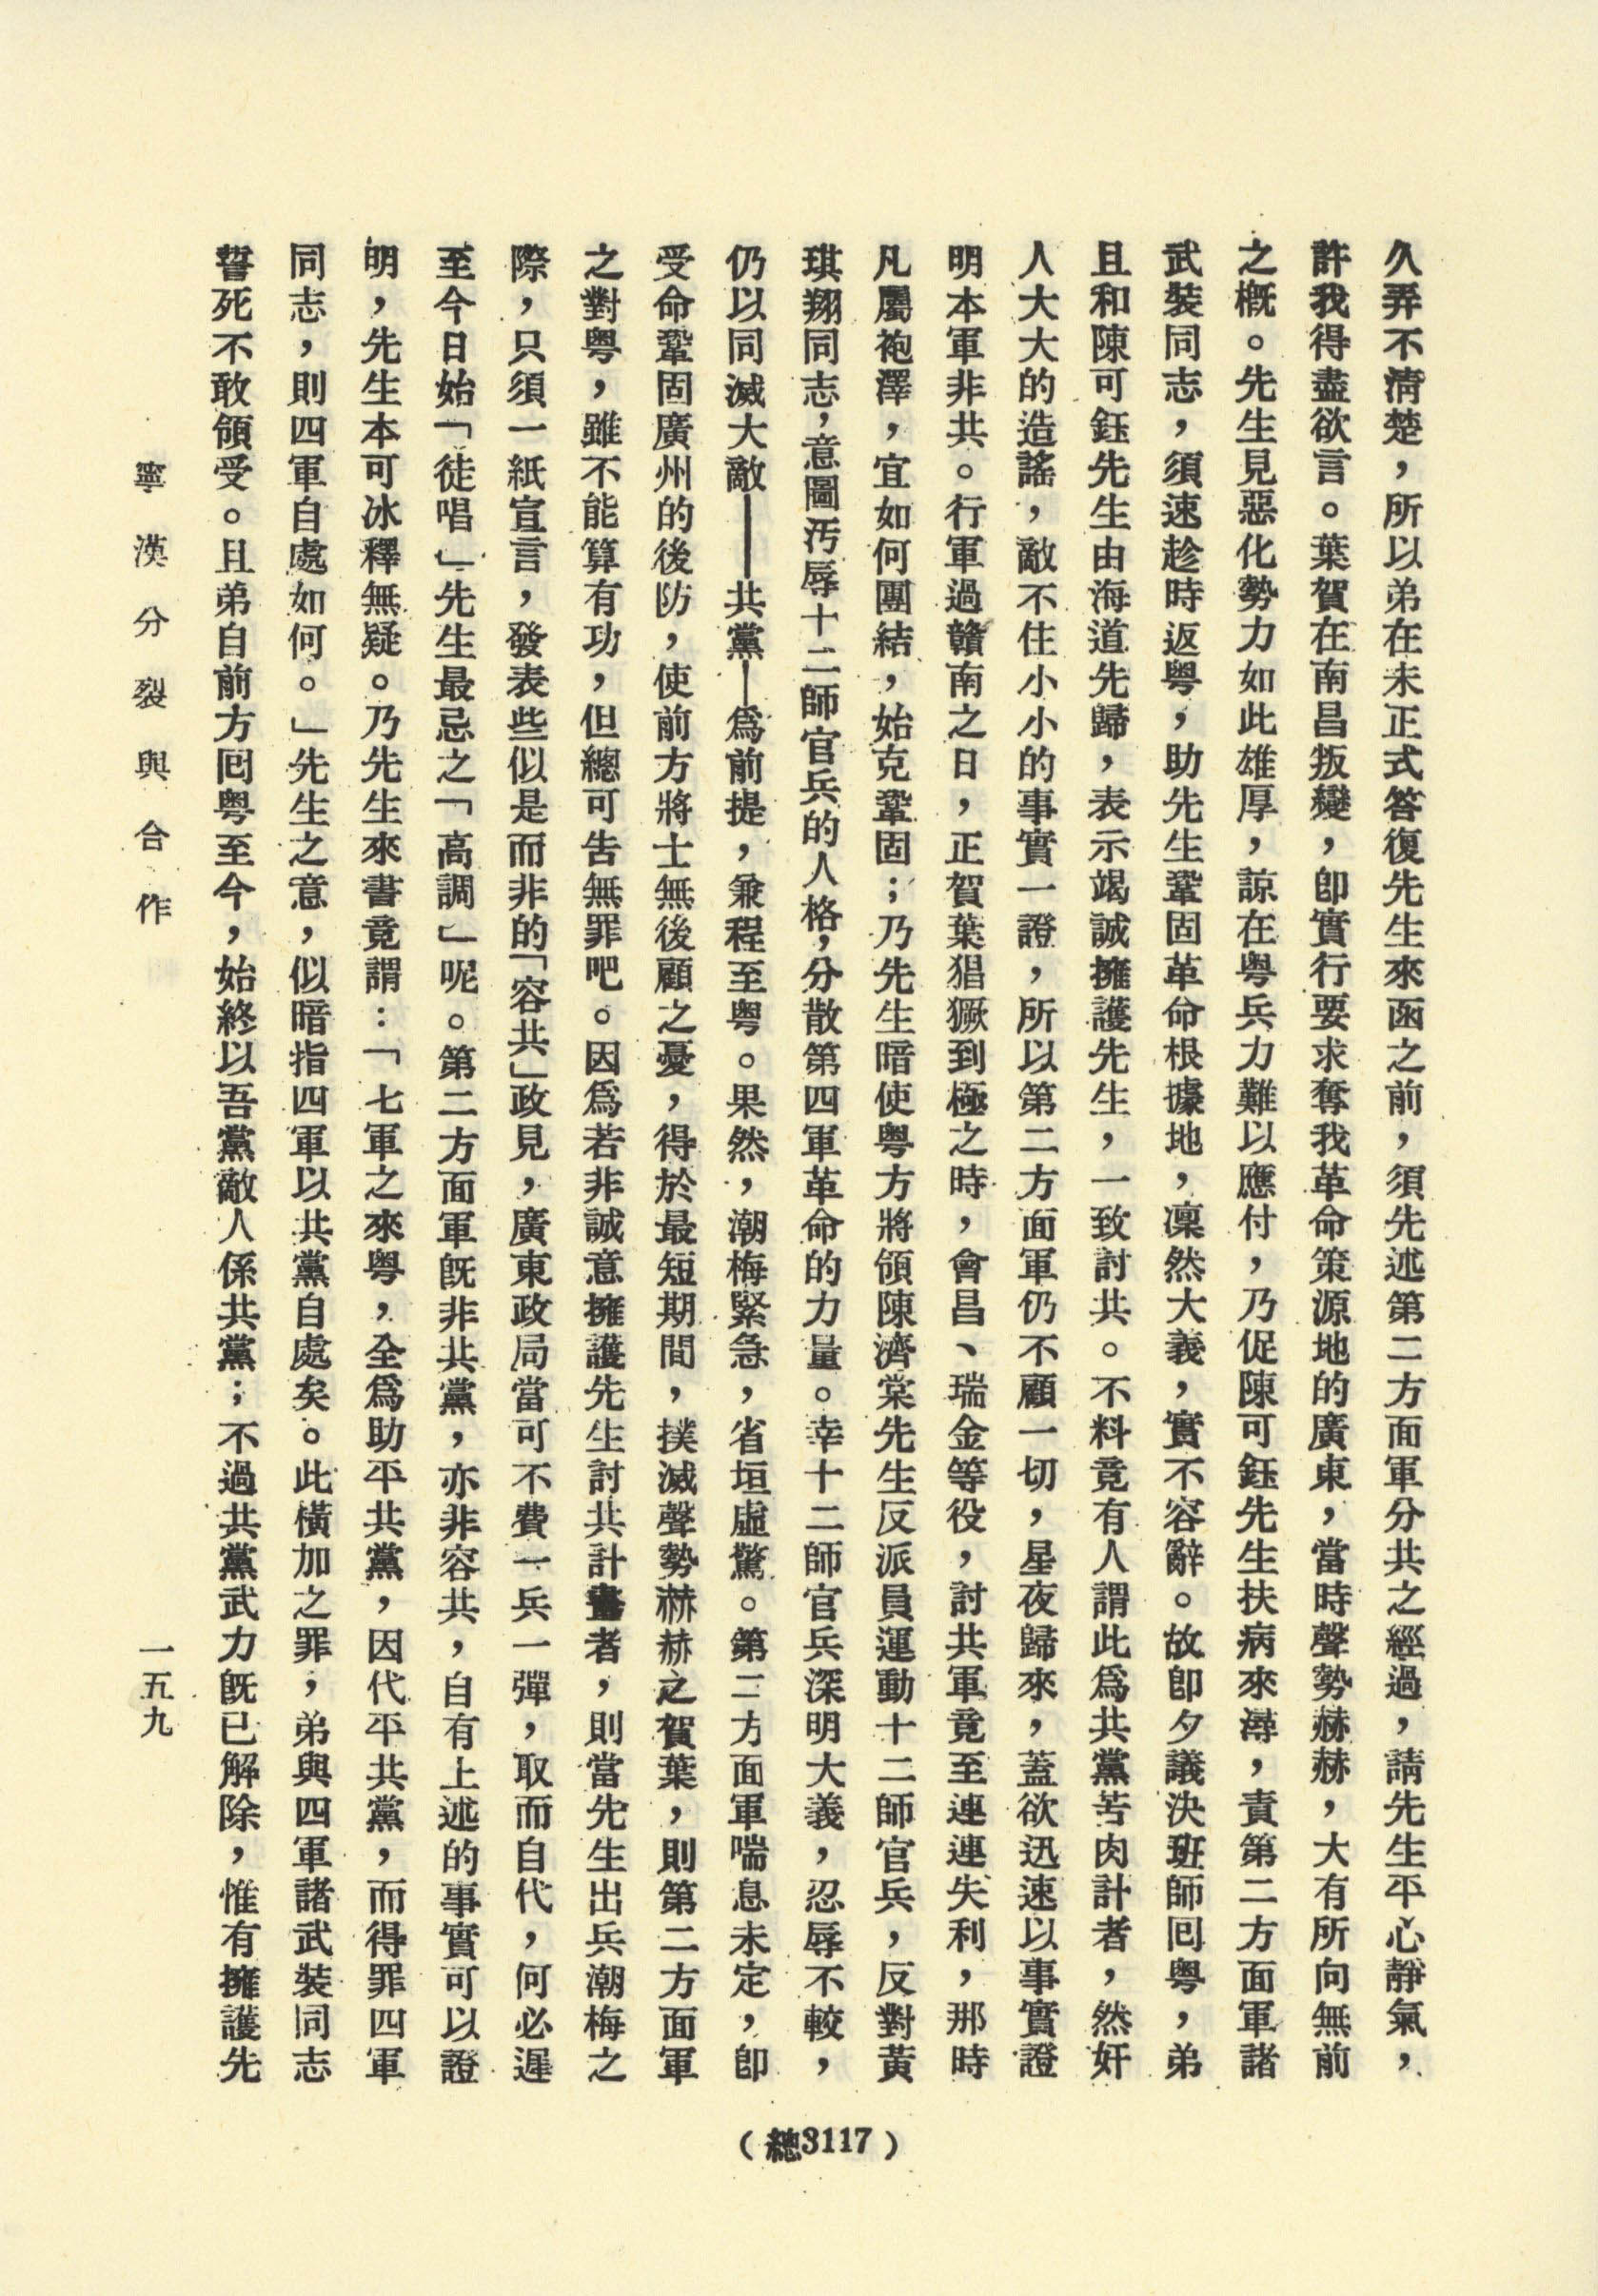 久弄不清楚，所以弟在未正式答復先生來函之前，須先述第二方面軍分共之經過，請先生平心靜氣，
許我得盡欲言。葉賀在南昌叛變，卽實行要求奪我革命策源地的廣東，當時聲勢赫赫，大有所向無前
之槪。先生見惡化勢力如此雄厚，諒在粤兵力難以應付，乃促陳可鈺先生扶病來潯，責第二方面軍諸
武裝同志，須速趁時返粤，助先生鞏固革命根據地，凜然大義，實不容辭。故卽夕議決班師回粤，弟
且和陳可鈺先生由海道先歸，表示竭誠擁護先生，一致討共。不料竟有人謂此爲共黨苦肉計者，然奸
人大大的造謠，敵不住小小的事實一證，所以第二方面軍仍不顧一切，星夜歸來，蓋欲迅速以事實證
明本軍非共。行軍過贛南之日，正賀葉猖獗到極之時，會昌、瑞金等役，討共軍竟至連連失利，那時
凡屬袍澤，宜如何團結，始克鞏固；乃先生暗使粤方將領陳濟棠先生反派員運動十二師官兵，反對黃
琪翔同志，意圖汚辱十二師官兵的人格，分散第四軍革命的力量。幸十二師官兵深明大義，忍辱不較，
仍以同滅大敵——共黨—爲前提，兼程至粤。果然，潮梅緊急，省垣虛驚。第二方面軍喘息未定，卽
受命鞏固廣州的後防，使前方將士無後顧之憂，得於最短期間，撲滅聲勢赫赫之賀葉，則第二方面軍
之對粤，雖不能算有功，但總可吿無罪吧。因爲若非誠意擁護先生討共計畫者，則當先生出兵潮梅之
際，只須一紙宣言，發表些似是而非的「容共」政見，廣東政局當可不費一兵一彈，取而自代，何必遲
至今日始「徒唱」先生最忌之「高調」呢。第二方面軍旣非共黨，亦非容共，自有上述的事實可以證
明，先生本可冰釋無疑。乃先生來書竟謂：「七軍之來粤，全爲助平共黨，因代平共黨，而得罪四軍
同志，則四軍自處如何。」先生之意，似暗指四軍以共黨自處矣。此橫加之罪，弟與四軍諸武裝同志
誓死不敢領受。且弟自前方回粤至今，始終以吾黨敵人係共黨；不過共黨武力旣已解除，惟有擁護先
寧漢分裂與合作
一五九
（總3117）